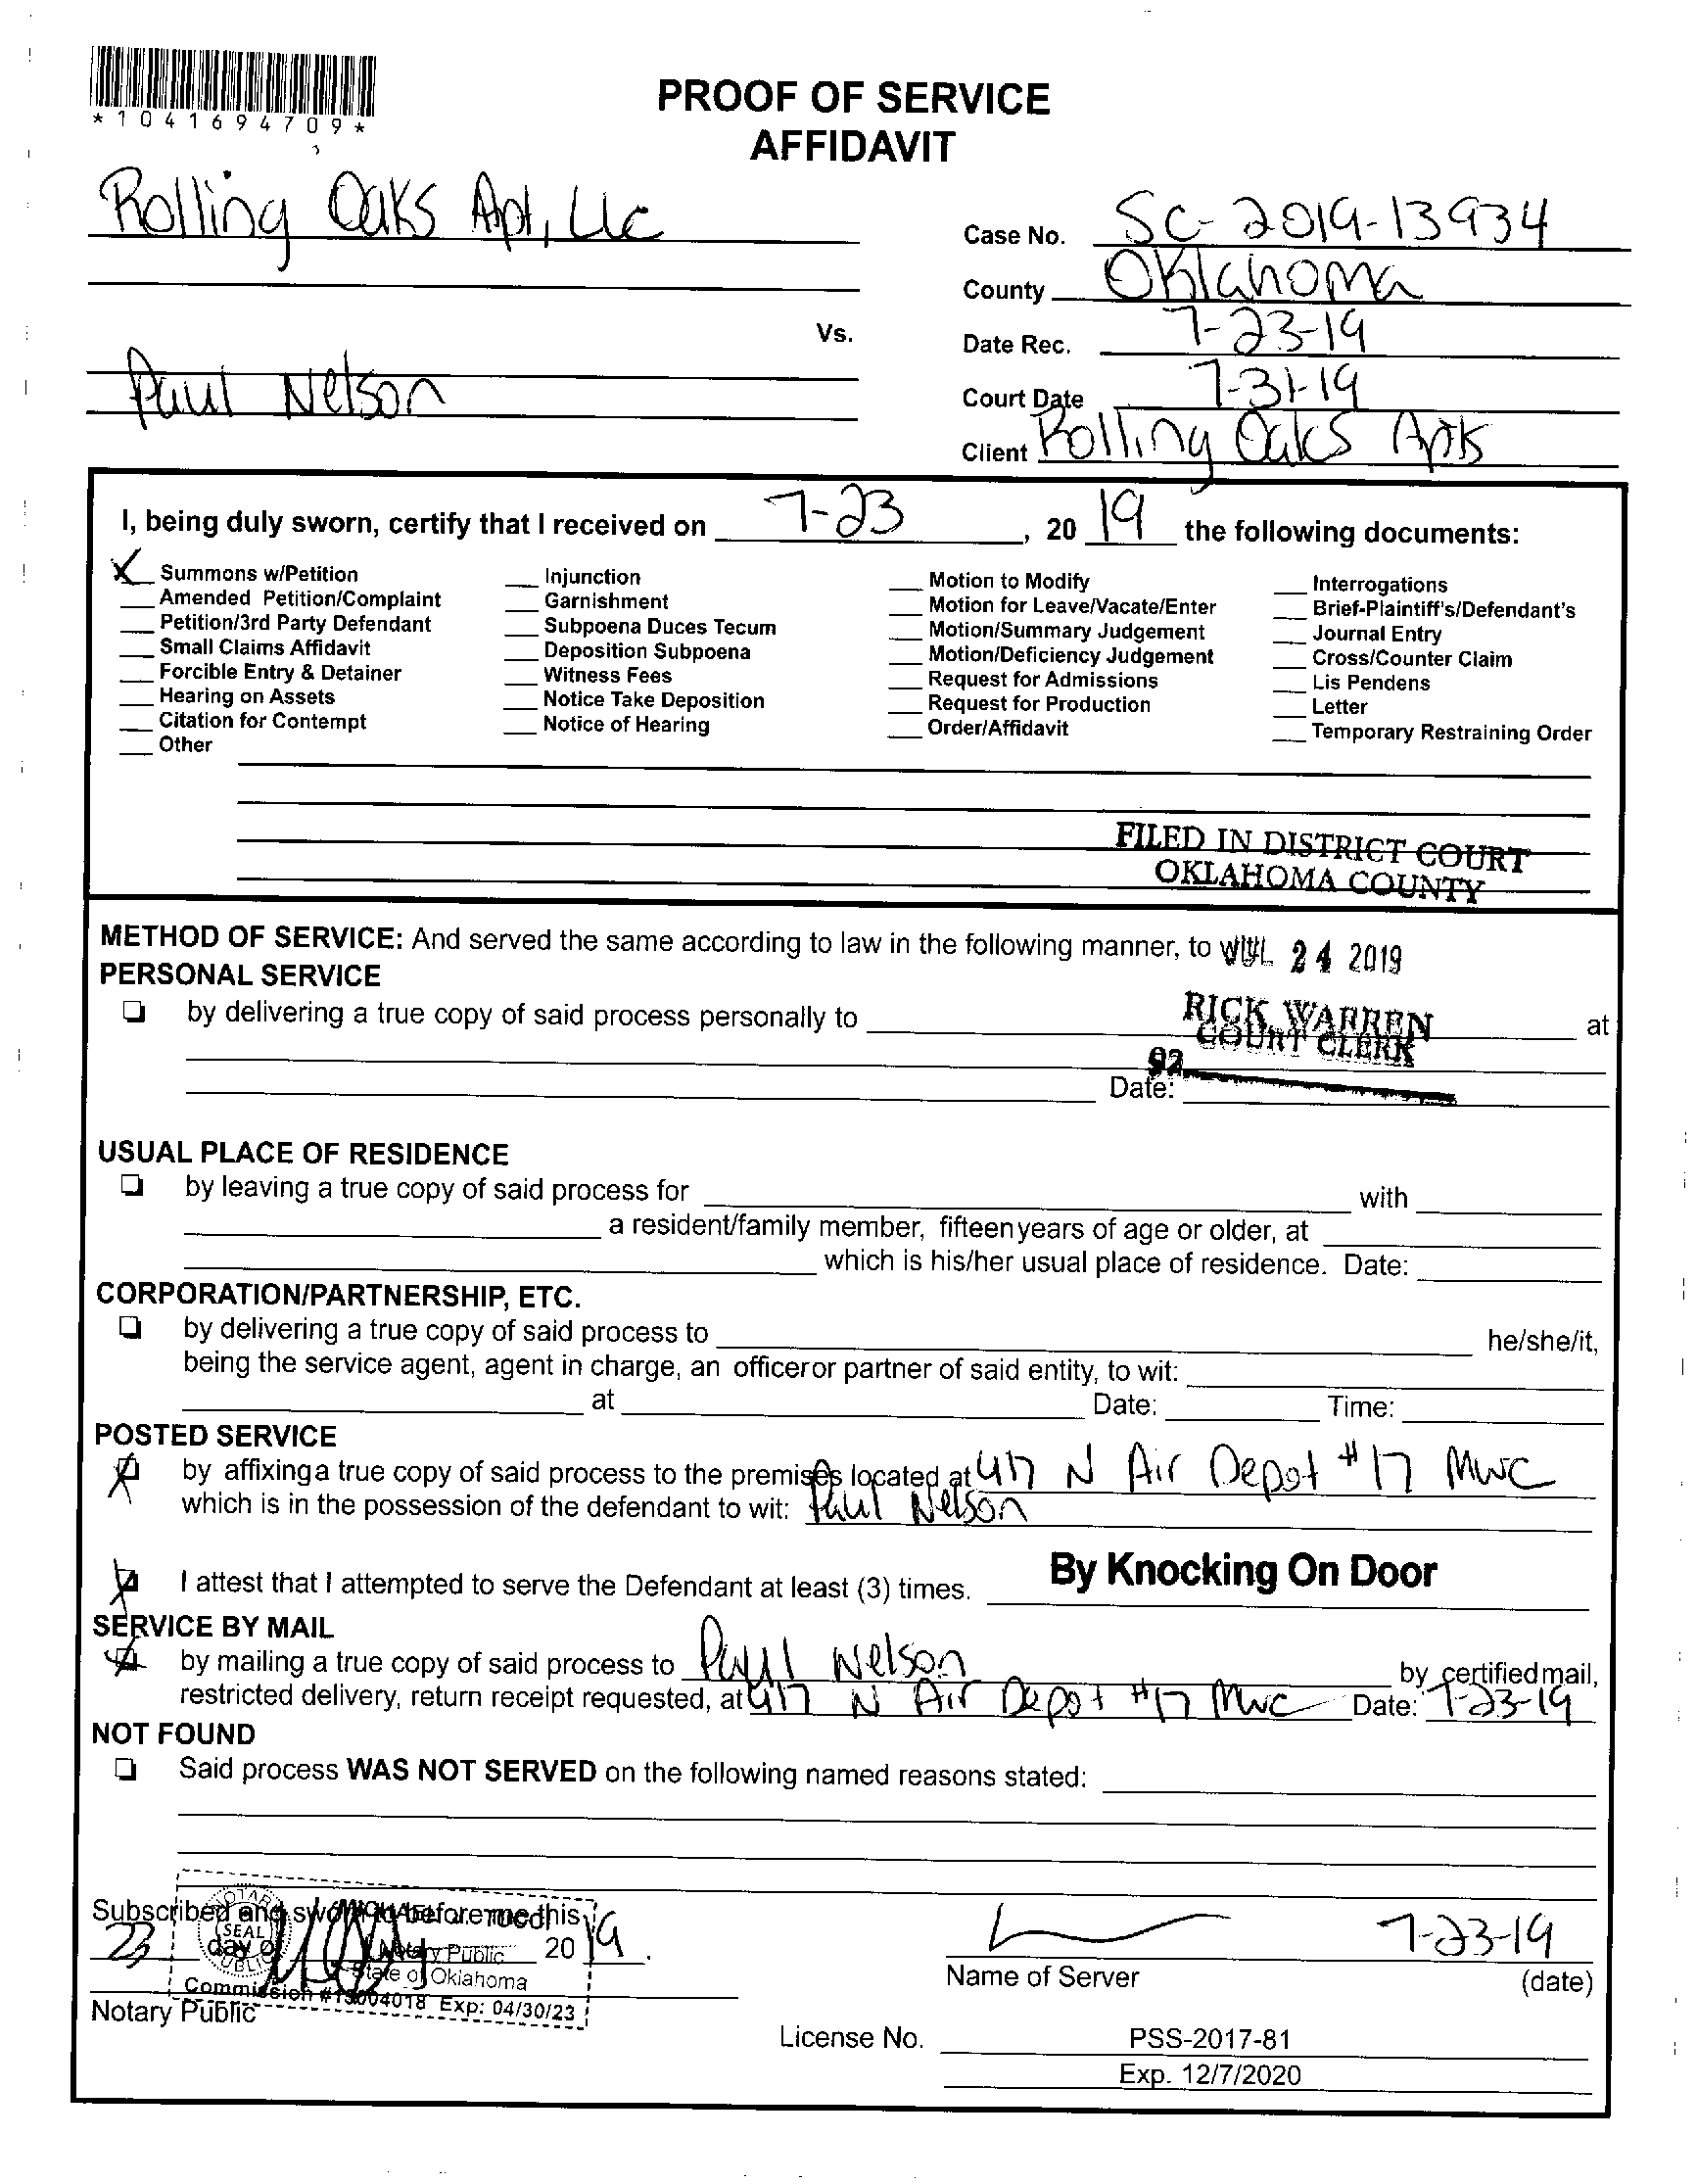 *1041694709*
PROOF OF SERVICE
AFFIDAVIT
Rolling Oaks Apt, LLC
Case No. SC-2019-13934
County Oklahoma
Vs.
Date Rec. 7-23-19
Paul Nelson
Court Date 7-31-19
Client Rolling Oaks Apts
I, being duly sworn, certify that I received on 7-23, 20 19 the following documents:
X Summons w/Petition
Amended Petition/Complaint
Petition/3rd Party Defendant
Small Claims Affidavit
Forcible Entry & Detainer
Hearing on Assets
Citation for Contempt
Other
Injunction
Garnishment
Subpoena Duces Tecum
Deposition Subpoena
Witness Fees
Notice Take Deposition
Notice of Hearing
Motion to Modify
Motion for Leave/Vacate/Enter
Motion/Summary Judgement
Motion/Deficiency Judgement
Request for Admissions
Request for Production
Order/Affidavit
Interrogations
Brief-Plaintiff's/Defendant's
Journal Entry
Cross/Counter Claim
Lis Pendens
Letter
Temporary Restraining Order
FILED IN DISTRICT COURT
OKLAHOMA COUNTY
METHOD OF SERVICE: And served the same according to law in the following manner, to wit:
JUL 24 2019
PERSONAL SERVICE
by delivering a true copy of said process personally to at
RICK WARREN
COURT CLERK
92
Date:
USUAL PLACE OF RESIDENCE
by leaving a true copy of said process for with
a resident/family member, fifteen years of age or older, at
which is his/her usual place of residence. Date:
CORPORATION/PARTNERSHIP, ETC.
by delivering a true copy of said process to he/she/it,
being the service agent, agent in charge, an officer or partner of said entity, to wit:
at Date: Time:
POSTED SERVICE
by affixing a true copy of said process to the premises located at 417 N Air Depot #17 MWC
which is in the possession of the defendant to wit: Paul Nelson
I attest that I attempted to serve the Defendant at least (3) times. By Knocking On Door
SERVICE BY MAIL
by mailing a true copy of said process to Paul Nelson by certified mail,
restricted delivery, return receipt requested, at 417 N Air Depot #17 MWC Date: 7-23-19
NOT FOUND
Said process WAS NOT SERVED on the following named reasons stated:
Subscribed and sworn to before me this
23 day of 20 19.
SEAL
Notary Public
State of Oklahoma
Commission #13004018 Exp: 04/30/23
Notary Public
7-23-19
Name of Server (date)
License No. PSS-2017-81
Exp. 12/7/2020